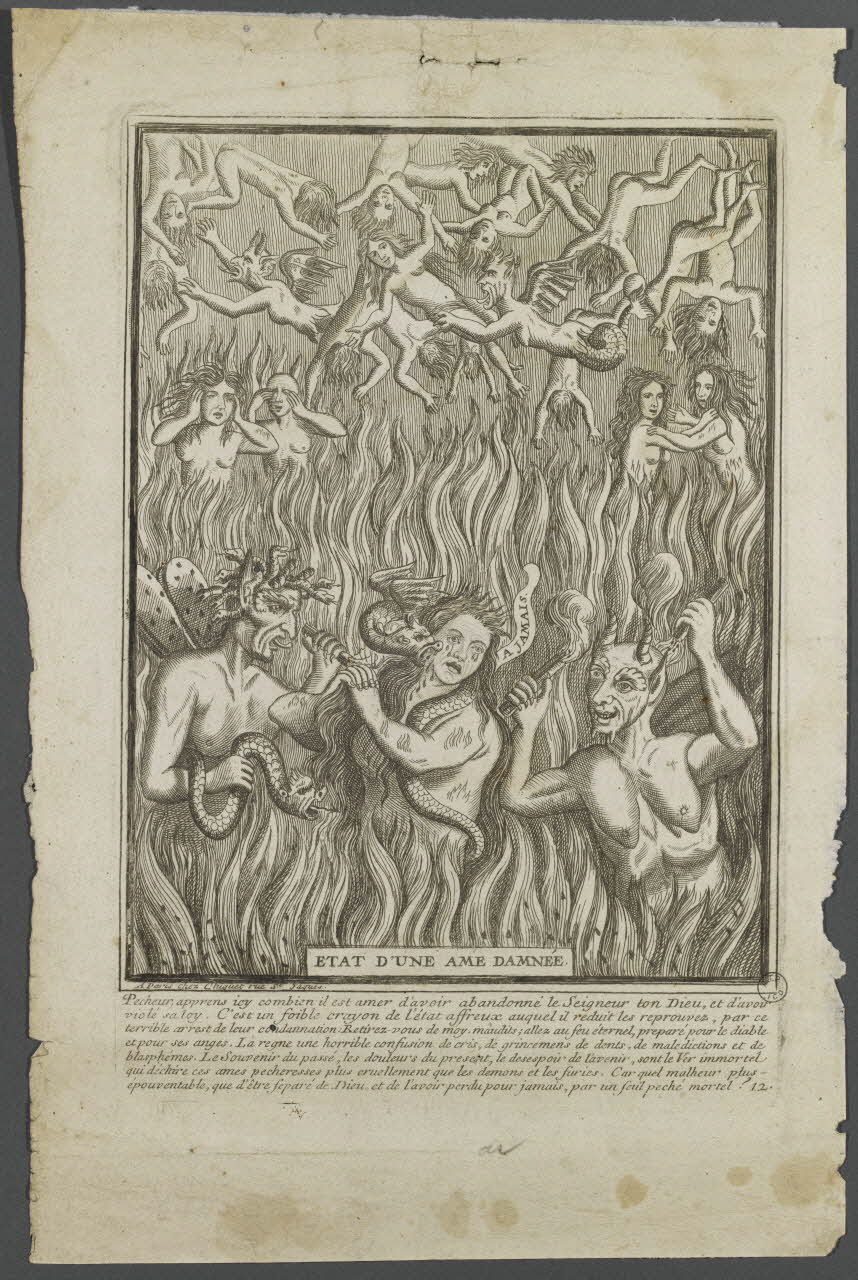 A JAMAIS.
ETAT D'UNE AME DAMNÉE.
A Paris chez Chiquet rue St. Jaques.
Pecheur, apprens icy combien il est amer d'avoir abandonné le Seigneur ton Dieu, et d'avoir
violé sa loy. C'est un foible crayon de l'état affreux auquel il reduit les reprouvez, par ce
terrible arrest de leur condamnation. Retirez-vous de moy, maudits; allez au feu éternel, preparé pour le diable
et pour ses anges. La regne une horrible confusion de cris, de grincemens de dents, de maledictions et de
blasphèmes. Le Souvenir du passé, les douleurs du present, le desespoir de l'avenir, sont le Ver immortel
qui déchire ces ames pecheresses plus cruellement que les demons et les furies. Car quel malheur plus-
epouventable, que d'être separé de Dieu, et de l'avoir perdu pour jamais, par un seul peché mortel ? 12.